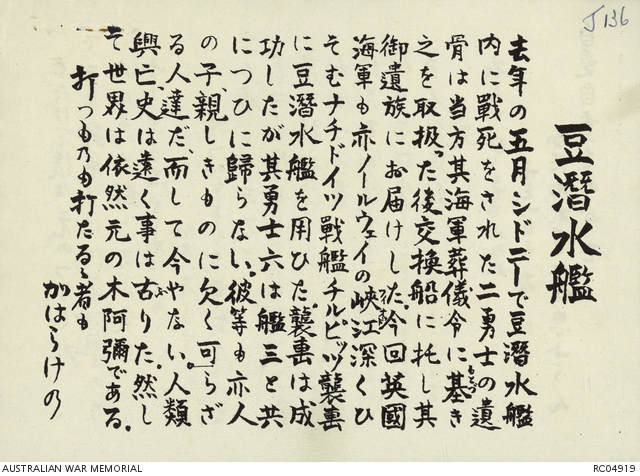 J136
豆潛水艦
去年の五月シドニーで豆潛水艦
内に戰死をされた二勇士の遺
骨は当方其海軍葬儀令に基き
之を取扱った後交換船に托し其
御遺族にお届けした。今回英國
海軍も亦ノールウェイの峡江深くひ
そむナチドイツ戰艦チルピッツ襲擊
に豆潛水艦を用ひた。襲擊は成
功したが其勇士六は艦三と共
につひに歸らない。彼等も亦人
の子、親しきものに欠く可らざ
る人達だ、而して今やない。人類
興亡、史は遠く事は古りた。然し
て世界は依然元の木阿彌である。
打つもの乃も打たるゝ者も
かはらけの
AUSTRALIAN WAR MEMORIAL
RC04919